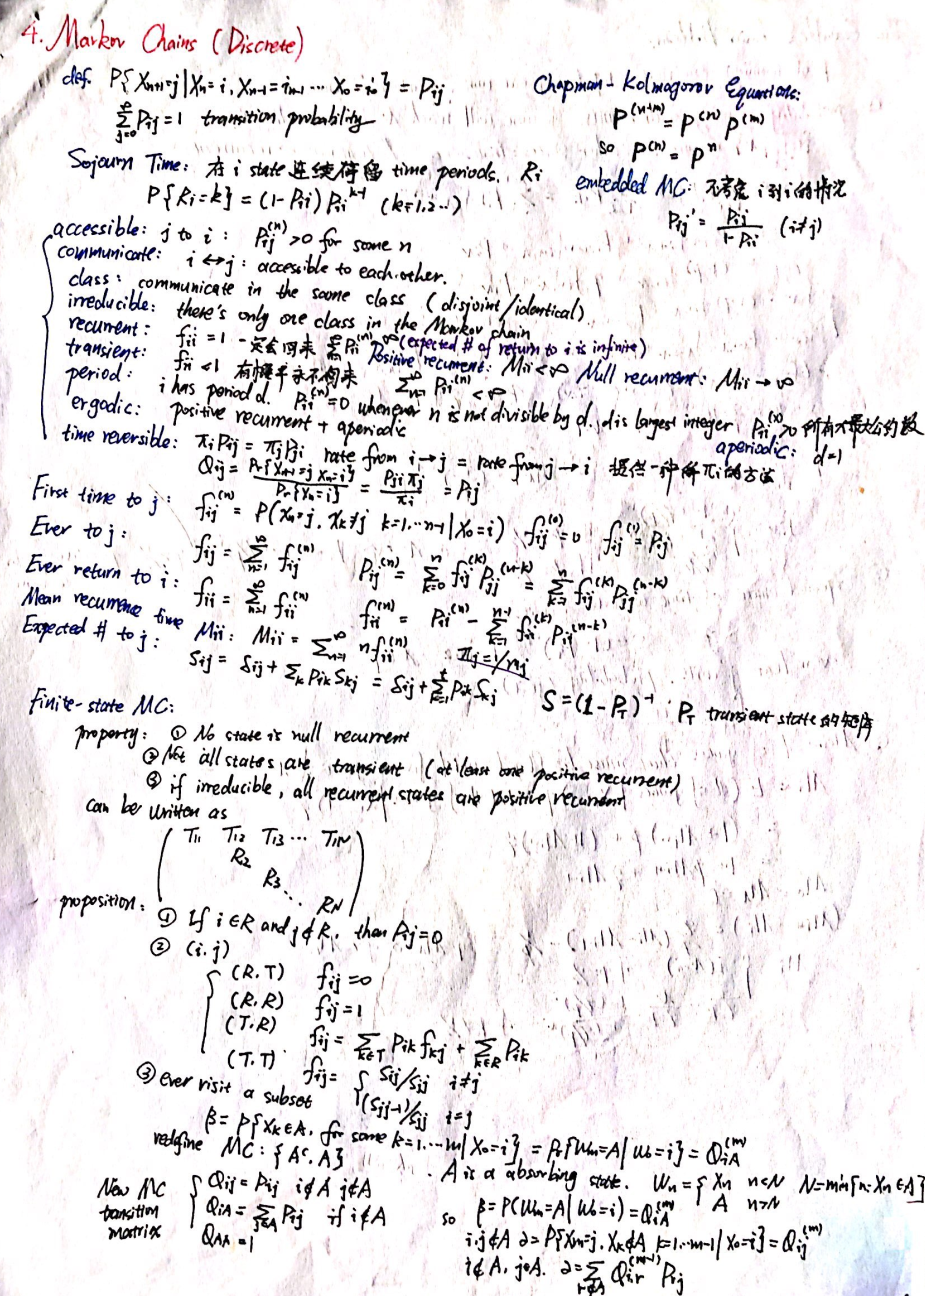 4. Markov Chains (Discrete)
def. P{Xn+1=j|Xn=i, Xn-1=in-1 ... X0=i0} = Pij
∑_{j=0}^∞ Pij = 1 transition probability
Chapman-Kolmogorov Equations:
P^(n+m) = P^(n) P^(m)
so P^(n) = P^n
Sojourn Time: 在 i state 连续停留 time periods. Ri
P{Ri=k} = (1-Pii) Pii^{k-1} (k=1,2...)
embedded MC: 不考虑 i 到 i 的情况
Pij' = Pij / (1-Pii) (i≠j)
accessible: j to i: Pij^(n) >0 for some n
communicate: i ↔ j: accessible to each other.
class: communicate in the same class (disjoint/identical)
irreducible: there's only one class in the Markov chain
recurrent: fii = 1 一定会回来 ∑ Pii^(n) = ∞ (expected # of return to i is infinite)
transient: fii <1 有概率永不回来 ∑_{n=1}^∞ Pii^(n) < ∞ Positive recurrent: Mii < ∞ Null recurrent: Mii → ∞
period: i has period d. Pii^(n) = 0 whenever n is not divisible by d. d is largest integer Pii^(n) >0 所有n最大公约数
ergodic: positive recurrent + aperiodic
aperiodic: d=1
time reversible: πi Pij = πj Pji rate from i→j = rate from j→i 提供一种解 πi 的方法
Qij = Pr{Xn+1=j Xn=i} / Pr{Xn=i} = Pji πj / πi = Pij
First time to j: fij^(n) = P(Xn=j, Xk≠j k=1,...n-1 | X0=i) fij^(0) = 0 fij^(1) = Pij
Ever to j: fij = ∑_{n=1}^∞ fij^(n) Pij^(n) = ∑_{k=0}^n fij^(k) Pjj^(n-k) = ∑_{k=1}^n fij^(k) Pjj^(n-k)
Ever return to i: fii = ∑_{n=1}^∞ fii^(n) fii^(n) = Pii^(n) - ∑_{k=1}^{n-1} fii^(k) Pii^(n-k)
Mean recurrence time Mii: Mii = ∑_{n=1}^∞ n fii^(n) πj = 1/mj
Expected # to j: Sij = δij + ∑k Pik Skj = δij + ∑_{k=1}^t Pik Skj S = (1-P_T)^{-1} P_T transient state 的矩阵
Finite-state MC:
property: ① No state is null recurrent
② Not all states are transient (at least one positive recurrent)
③ if irreducible, all recurrent states are positive recurrent
can be written as
T11 T12 T13 ... T1N
R2
R3
RN
proposition: ① If i∈R and j∉R, then Pij=0
② (i.j)
(R.T) fij = 0
(R.R) fij = 1
(T.R) fij = ∑_{k∈T} Pik fkj + ∑_{k∈R} Pik
(T.T) fij = { Sij/Sjj i≠j
(Sjj-1)/Sjj i=j
③ Ever visit a subset
β = P{Xk∈A, for some k=1,...m | X0=i} = Pr{Wm=A | W0=i} = QiA^(m)
redefine MC: {A^c, A}
A is a absorbing state. Wn = { Xn n<N
A n≥N N=min{n: Xn∈A}
New MC transition matrix
Qij = Pij i∉A j∉A
QiA = ∑_{j∈A} Pij if i∉A
QAA = 1
so β = P(Wm=A | W0=i) = QiA^(m)
i,j∉A ∂ = P{Xm=j, Xk∉A k=1...m-1 | X0=i} = Qij^(m)
i∉A, j∈A. ∂ = ∑_{r∉A} Qir^(m-1) Prj